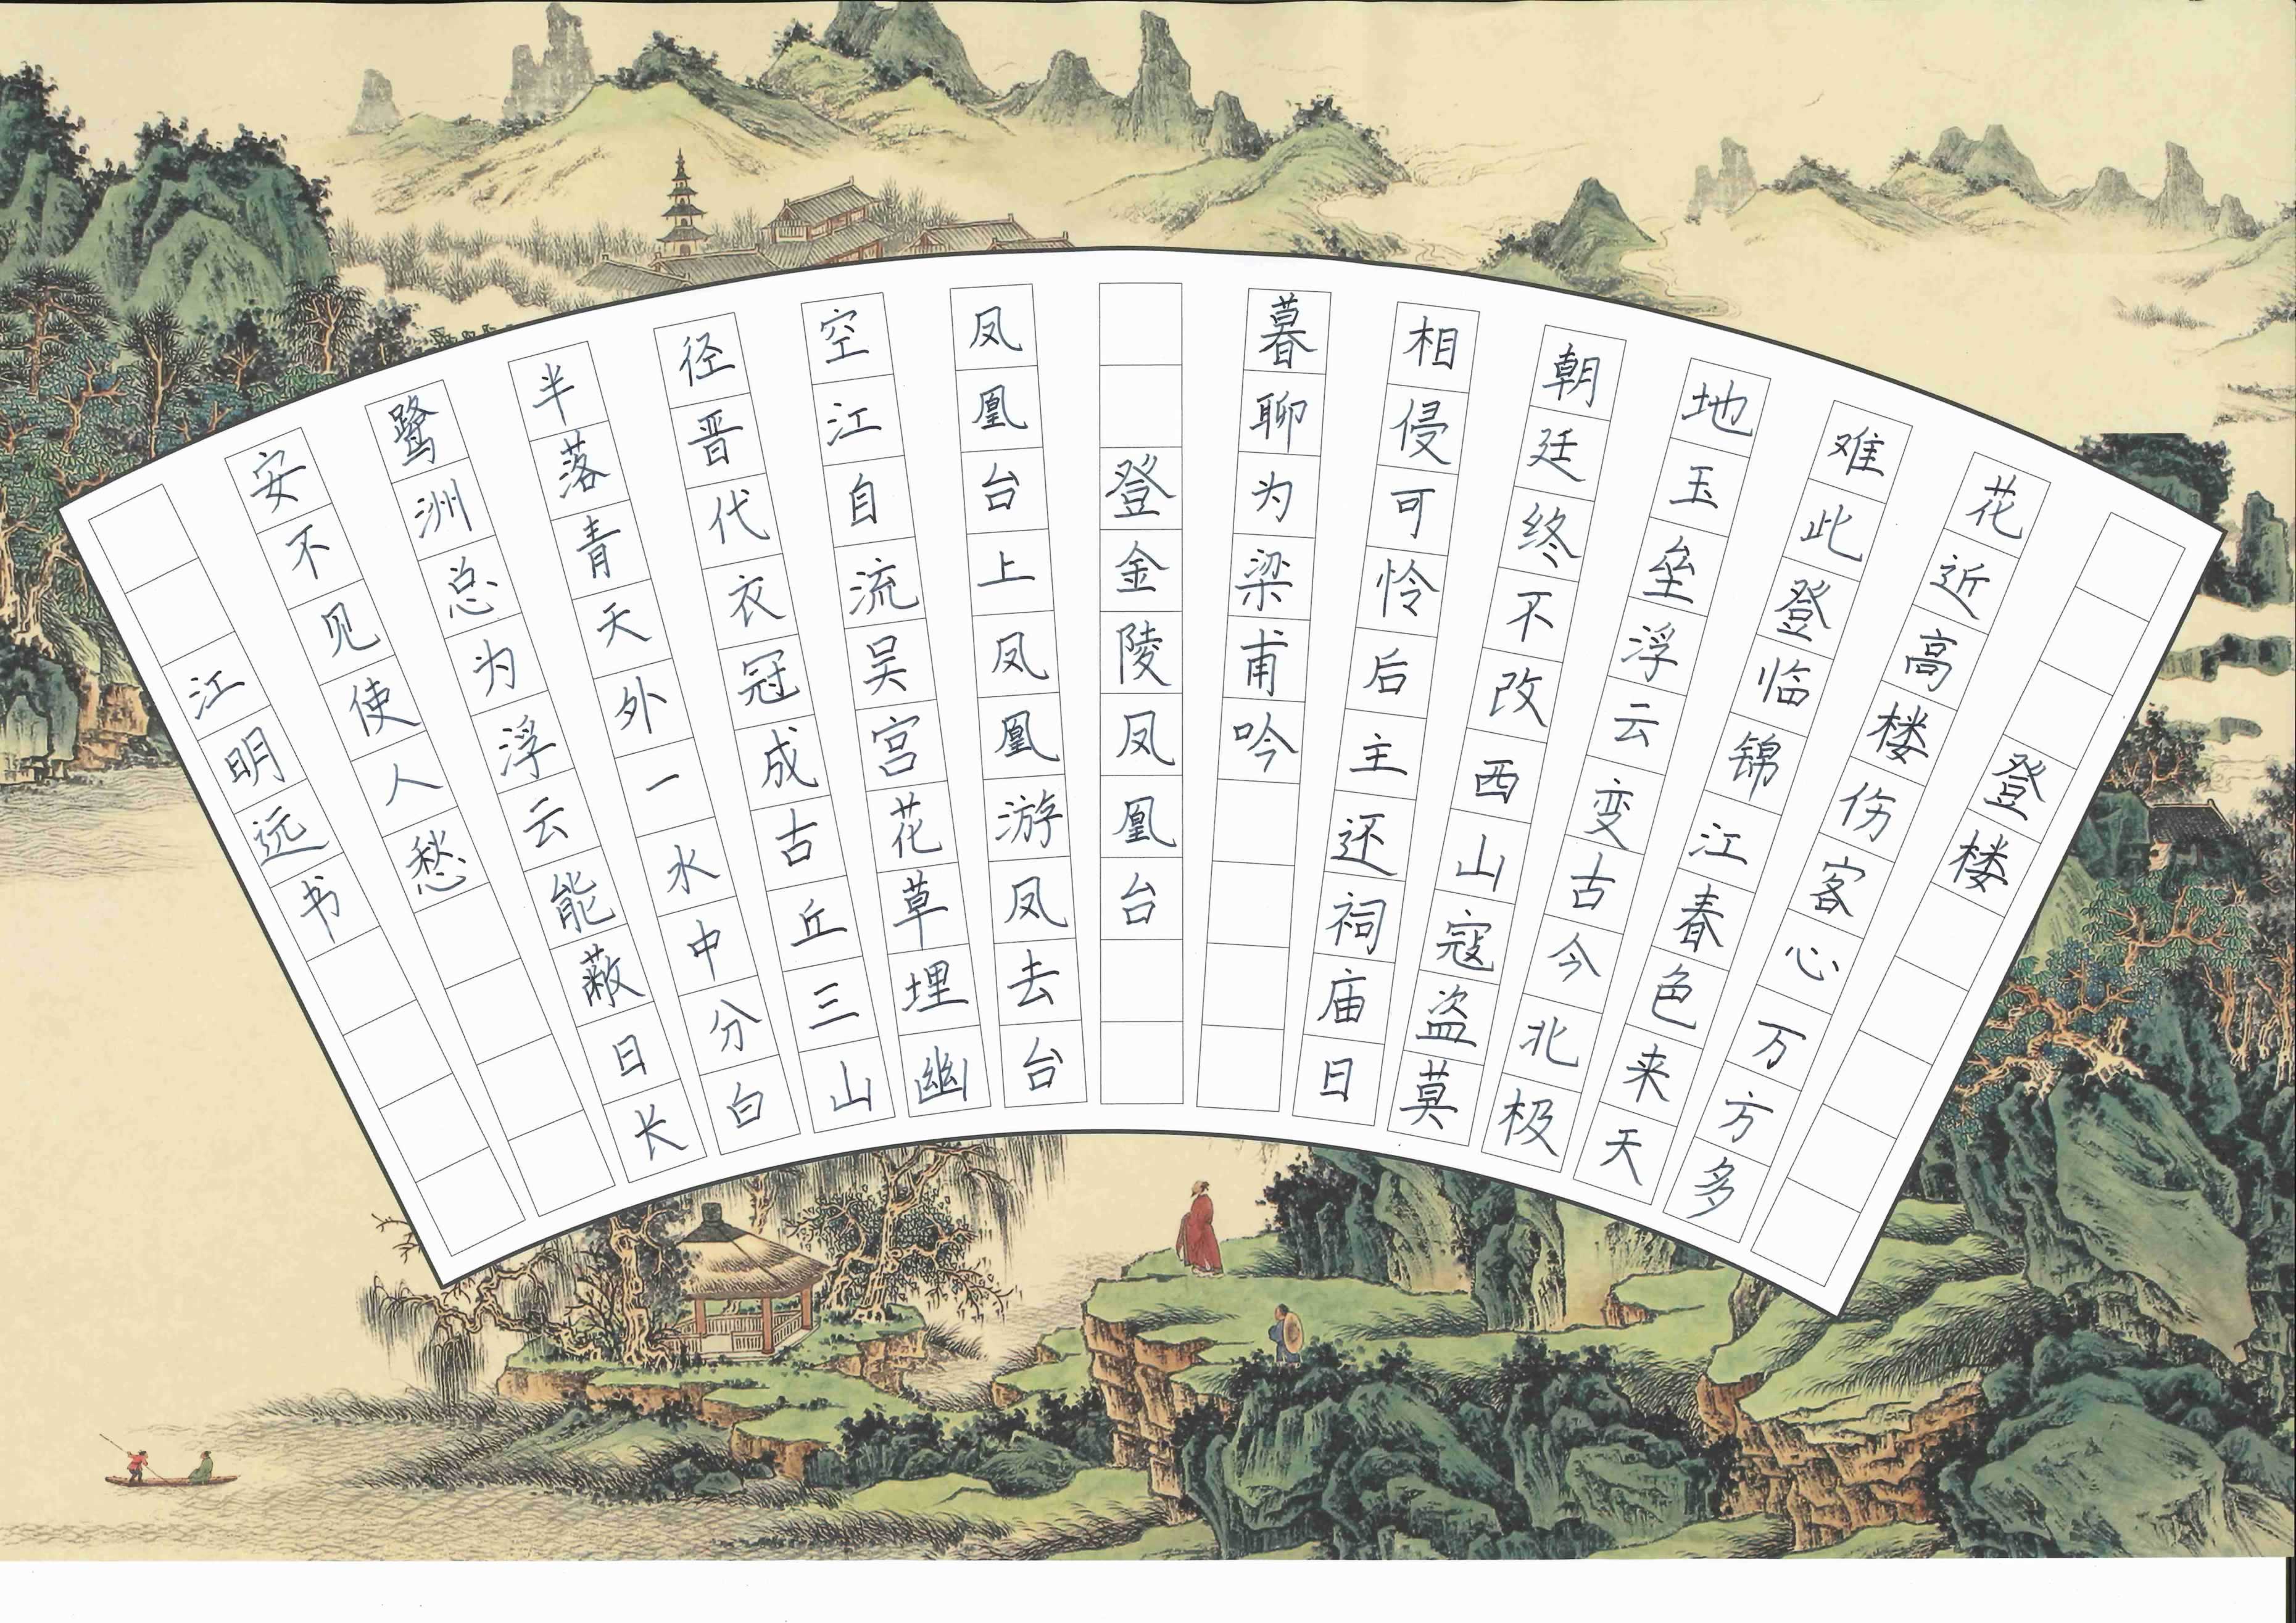 登楼
花近高楼伤客心万方多
难此登临锦江春色来天
地玉垒浮云变古今北极
朝廷终不改西山寇盗莫
相侵可怜后主还祠庙日
暮聊为梁甫吟
登金陵凤凰台
凤凰台上凤凰游凤去台
空江自流吴宫花草埋幽
径晋代衣冠成古丘三山
半落青天外一水中分白
鹭洲总为浮云能蔽日长
安不见使人愁
江明远书